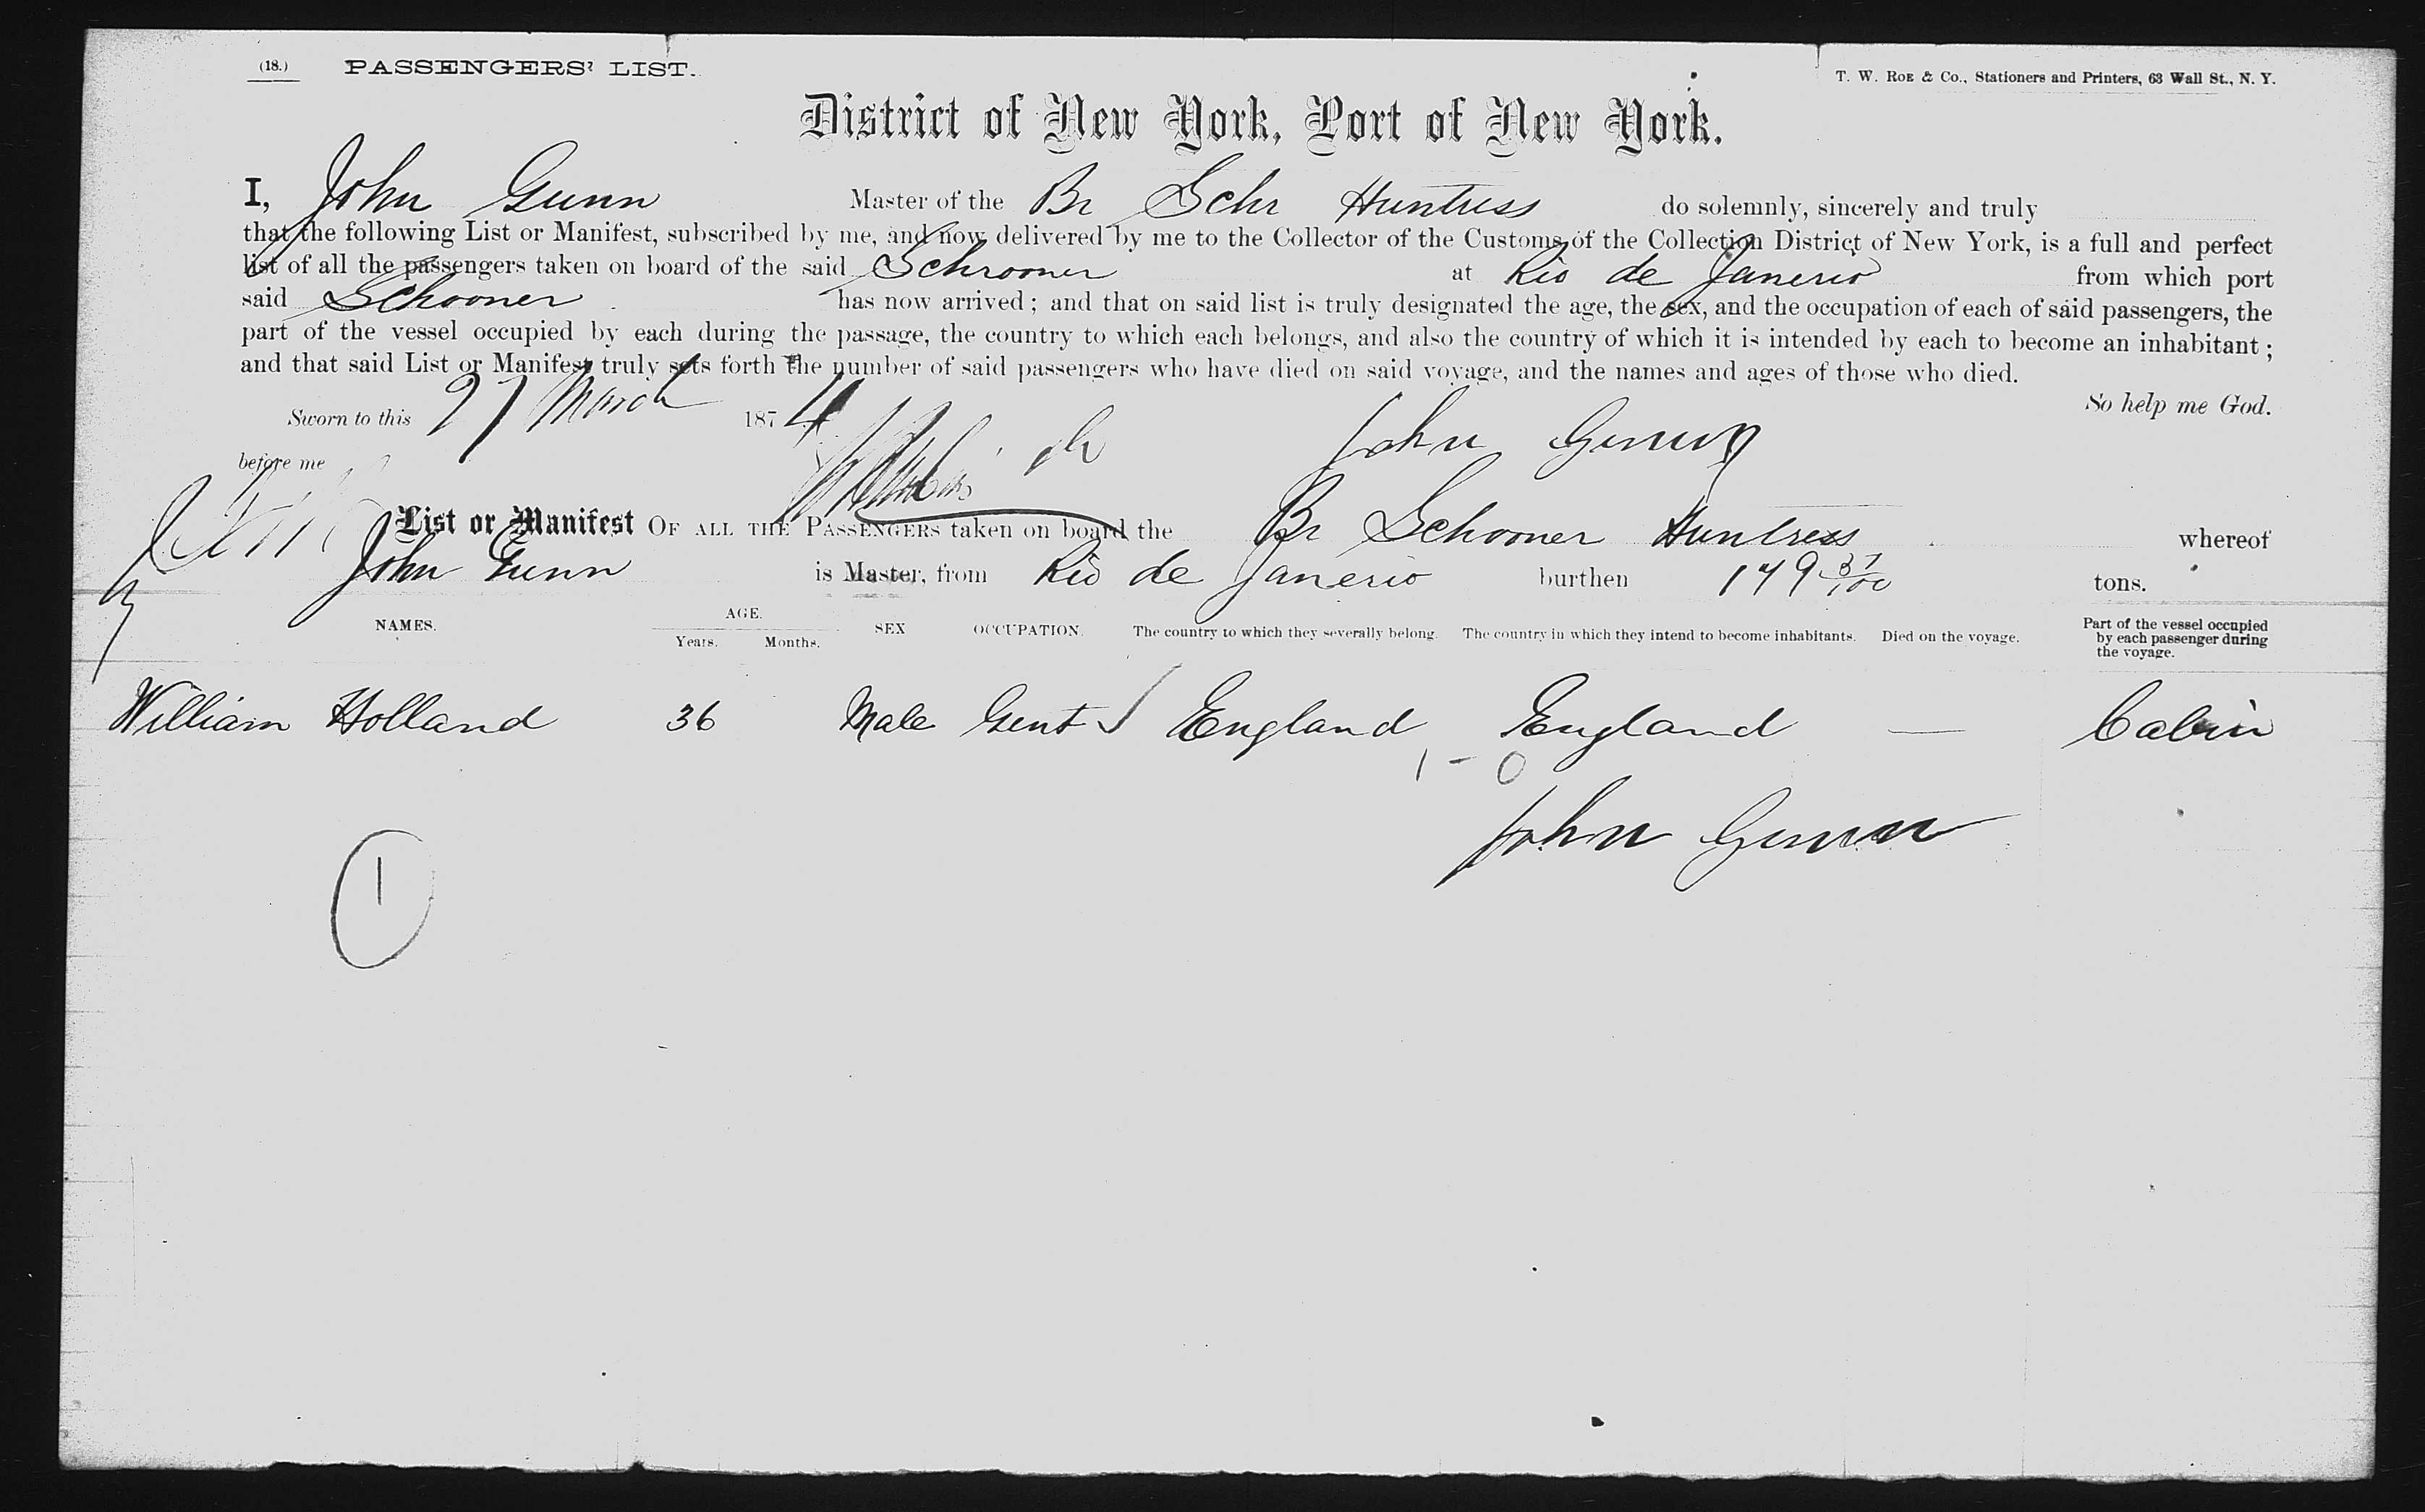 (18.) PASSENGERS' LIST. T. W. ROE & Co., Stationers and Printers, 63 Wall St., N. Y.
District of New York, Port of New York.
I, John Gunn Master of the Br Schr Huntress do solemnly, sincerely and truly
that the following List or Manifest, subscribed by me, and now delivered by me to the Collector of the Customs of the Collection District of New York, is a full and perfect
list of all the passengers taken on board of the said Schrooner at Rio de Janerio from which port
said Schooner has now arrived; and that on said list is truly designated the age, the sex, and the occupation of each of said passengers, the
part of the vessel occupied by each during the passage, the country to which each belongs, and also the country of which it is intended by each to become an inhabitant;
and that said List or Manifest truly sets forth the number of said passengers who have died on said voyage, and the names and ages of those who died.
Sworn to this 27 March 1874 So help me God.
John Gunn
before me
List or Manifest OF ALL THE PASSENGERS taken on board the Br Schooner Huntress whereof
John Gunn is Master, from Rio de Janerio burthen 179 37/100 tons.
NAMES. AGE. Years. Months. SEX OCCUPATION. The country to which they severally belong. The country in which they intend to become inhabitants. Died on the voyage. Part of the vessel occupied by each passenger during the voyage.
William Holland 36 Male Gent England England — Cabin
1 - 0
John Gunn
1